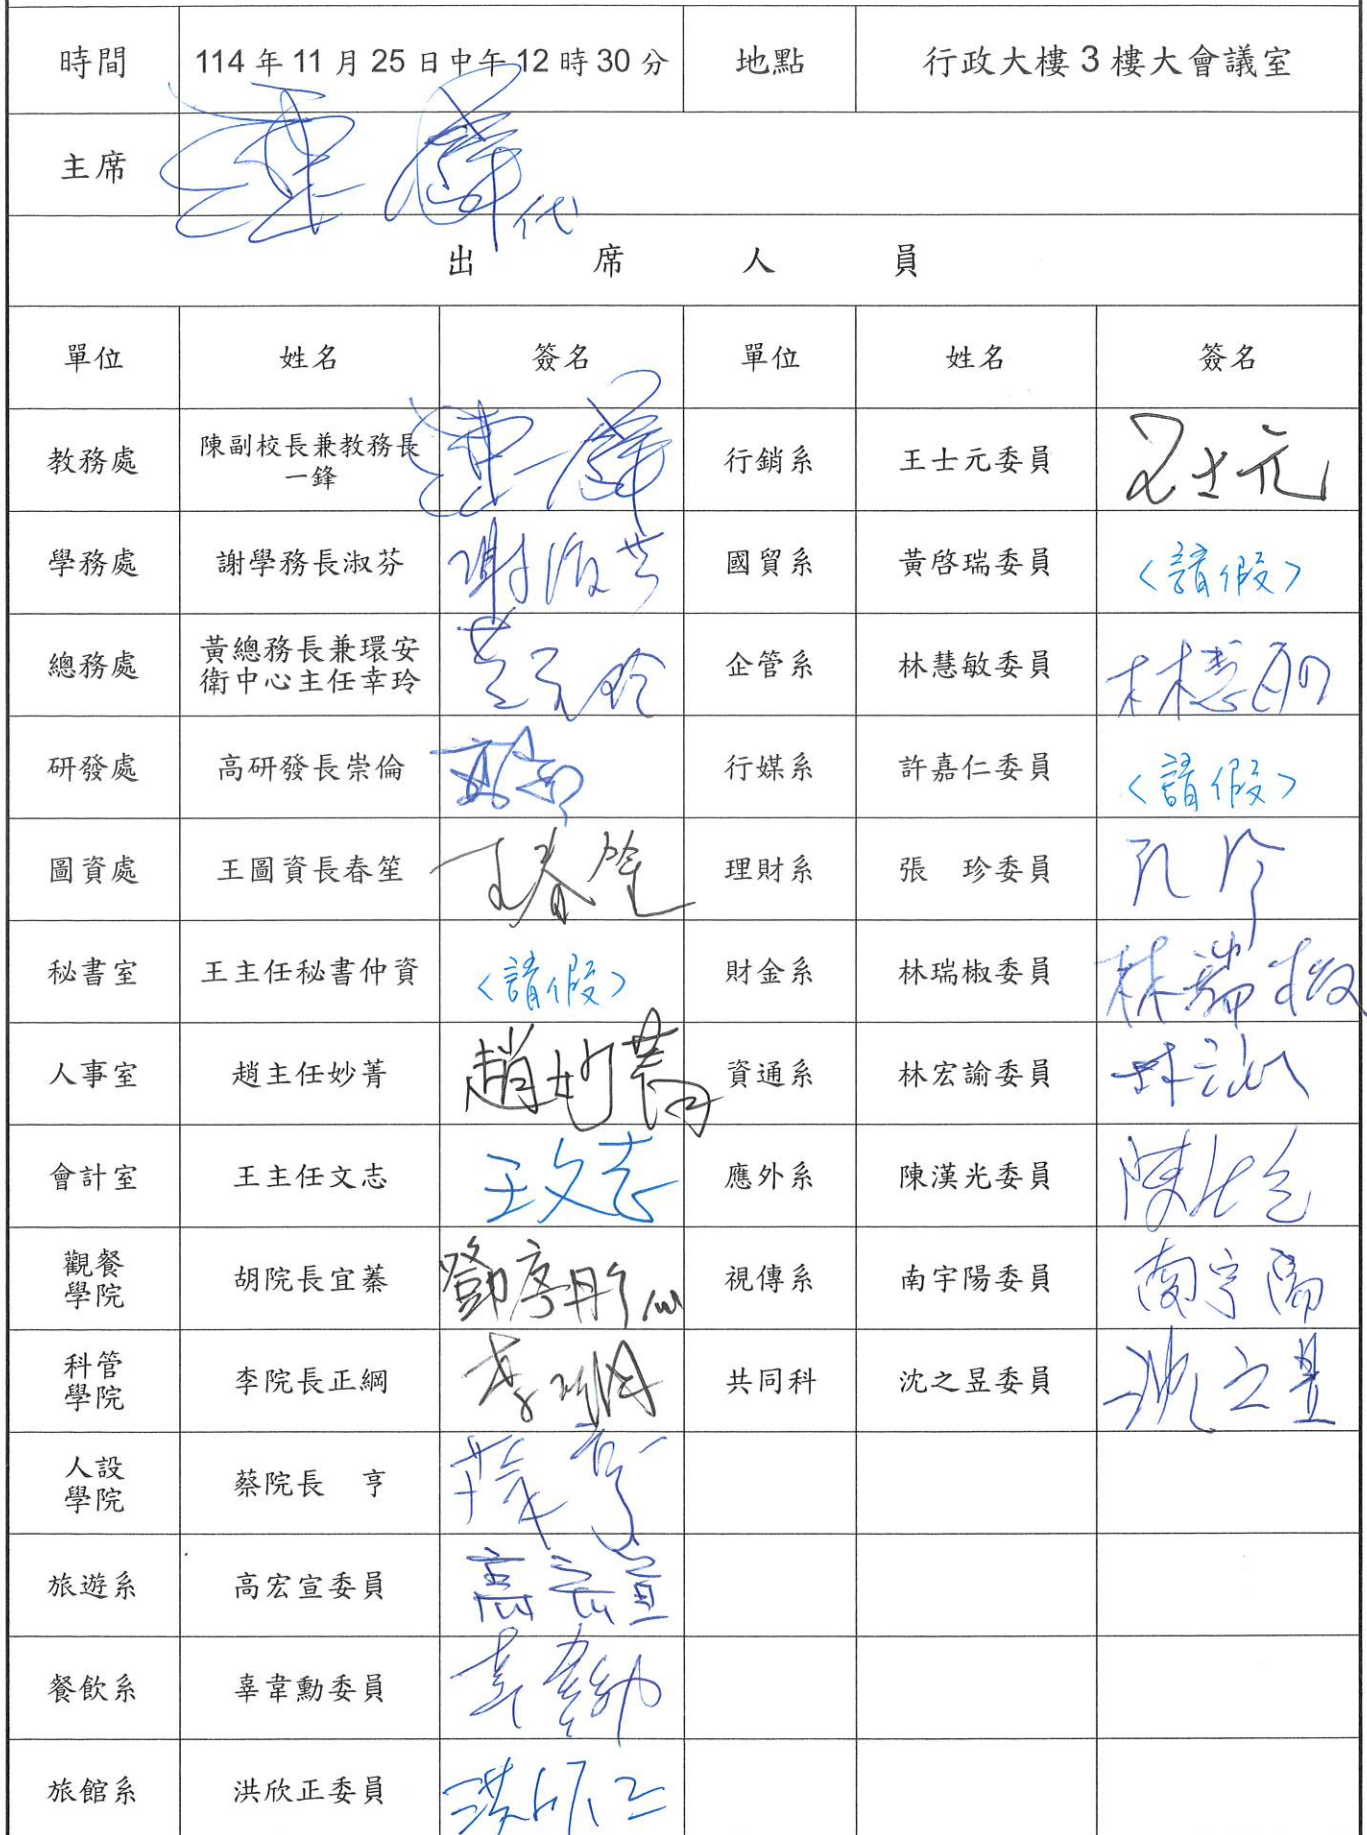 時間 114年11月25日中午12時30分 地點 行政大樓3樓大會議室
主席 代
出席人員
單位 姓名 簽名 單位 姓名 簽名
教務處 陳副校長兼教務長一鋒 行銷系 王士元委員 王士元
學務處 謝學務長淑芬 謝淑芬 國貿系 黃啓瑞委員 〈請假〉
總務處 黃總務長兼環安衛中心主任幸玲 黃幸玲 企管系 林慧敏委員 林慧敏
研發處 高研發長崇倫 行媒系 許嘉仁委員 〈請假〉
圖資處 王圖資長春笙 王春笙 理財系 張 珍委員 張珍
秘書室 王主任秘書仲資 〈請假〉 財金系 林瑞椒委員 林瑞椒
人事室 趙主任妙菁 趙妙菁 資通系 林宏諭委員 林宏諭
會計室 王主任文志 王文志 應外系 陳漢光委員 陳漢光
觀餐學院 胡院長宜蓁 視傳系 南宇陽委員 南宇陽
科管學院 李院長正綱 李正綱 共同科 沈之昱委員 沈之昱
人設學院 蔡院長 亨 蔡亨
旅遊系 高宏宣委員 高宏宣
餐飲系 辜韋勳委員 辜韋勳
旅館系 洪欣正委員 洪欣正